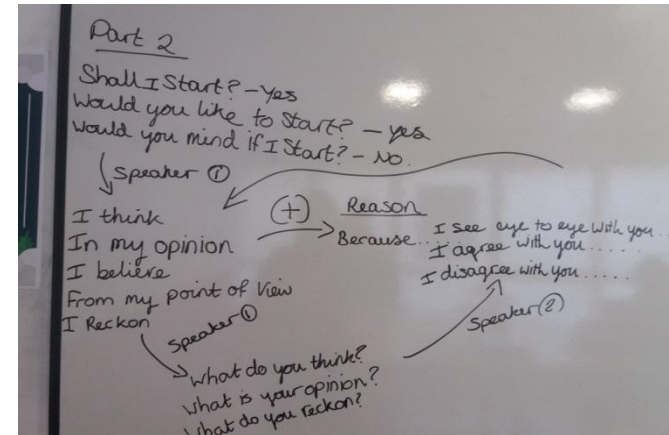 Part 2
Shall I Start? - Yes
Would you like to Start? - yes
Would you mind if I Start? - No.
Speaker ①
I think
In my opinion
I believe
From my point of View
I Reckon
(+)
Reason
Because...
I see eye to eye with you...
I agree with you.....
I disagree with you.....
Speaker ①
What do you think?
What is your opinion?
What do you reckon?
Speaker ②